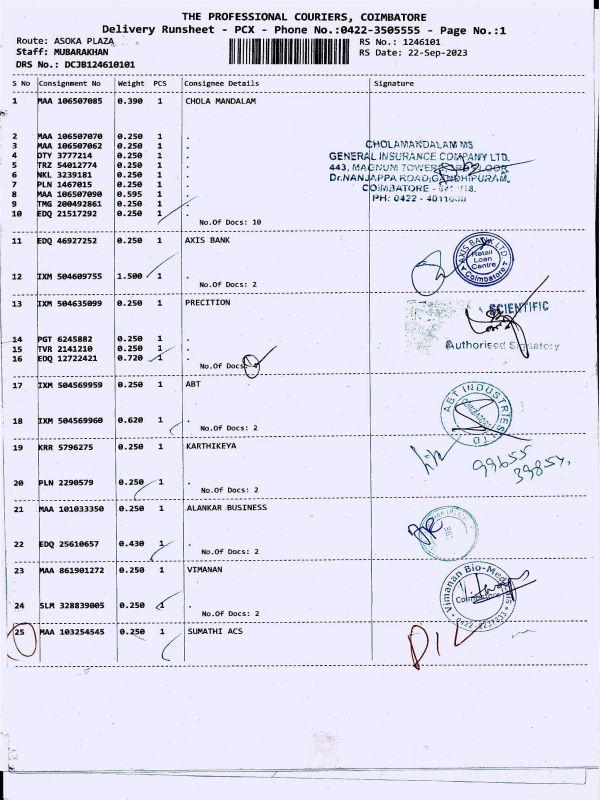 THE PROFESSIONAL COURIERS, COIMBATORE
Delivery Runsheet - PCX - Phone No.:0422-3505555 - Page No.:1
Route: ASOKA PLAZA
RS No.: 1246101
Staff: MUBARAKHAN
RS Date: 22-Sep-2023
DRS No.: DCJB124610101
S No Consignment No Weight PCS Consignee Details Signature
1 MAA 106507085 0.390 1 CHOLA MANDALAM
2 MAA 106507070 0.250 1 .
3 MAA 106507062 0.250 1 .
4 DTY 3777214 0.250 1 .
5 TRZ 54012774 0.250 1 .
6 NKL 3239181 0.250 1 .
7 PLN 1467015 0.250 1 .
8 MAA 106507090 0.595 1 .
9 TMG 200492861 0.250 1 .
10 EDQ 21517292 0.250 1 .
No.Of Docs: 10
CHOLAMANDALAM MS
GENERAL INSURANCE COMPANY LTD.
443, MAGNUM TOWER, FLOOR,
Dr.NANJAPPA ROAD,GANDHIPURAM,
COIMBATORE -
PH: 0422 -
11 EDQ 46927252 0.250 1 AXIS BANK
12 IXM 504609755 1.500 1 .
No.Of Docs: 2
AXIS BANK LTD.
Retail
Loan
Centre
Coimbatore
13 IXM 504635099 0.250 1 PRECITION
14 PGT 6245882 0.250 1 .
15 TVR 2141210 0.250 1 .
16 EDQ 12722421 0.720 1 .
No.Of Docs: 4
SCIENTIFIC
Authorised Signatory
17 IXM 504569959 0.250 1 ABT
18 IXM 504569960 0.620 1 .
No.Of Docs: 2
ABT INDUSTRIES LTD
19 KRR 5796275 0.250 1 KARTHIKEYA
99655
39854
20 PLN 2290579 0.250 1 .
No.Of Docs: 2
21 MAA 101033350 0.250 1 ALANKAR BUSINESS
22 EDQ 25610657 0.430 1 .
No.Of Docs: 2
23 MAA 861901272 0.250 1 VIMANAN
24 SLM 328839005 0.250 1 .
No.Of Docs: 2
Vimanan Bio-Med
25 MAA 103254545 0.250 1 SUMATHI ACS
DIL